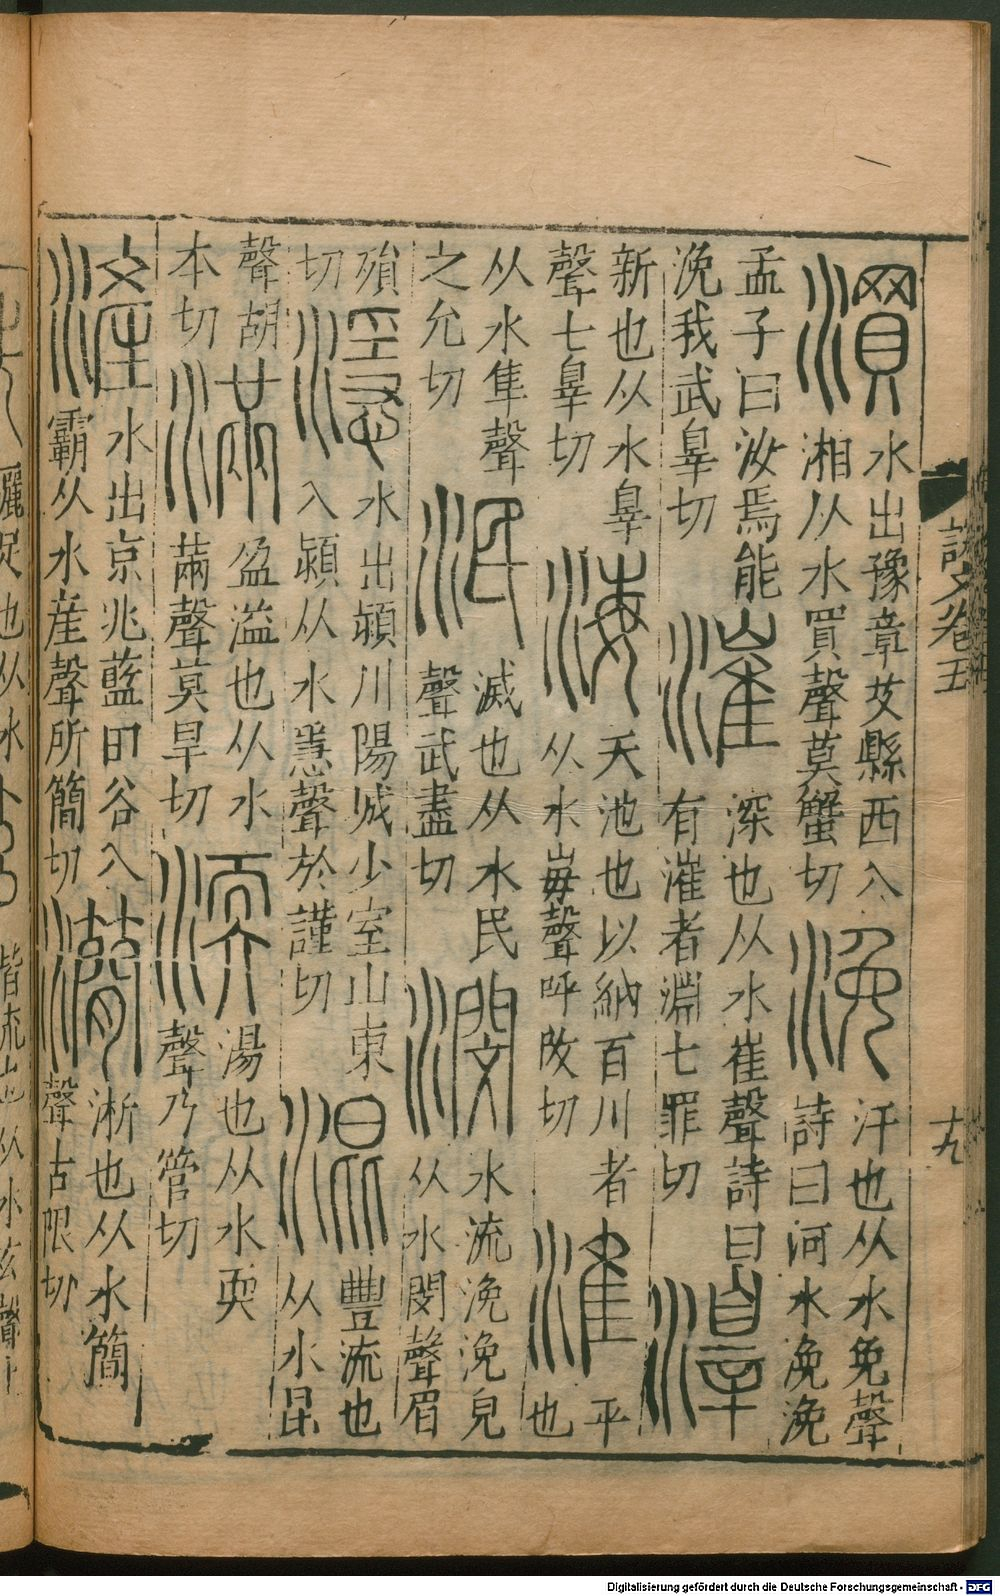 㵋水出豫章艾縣西入湘从水買聲莫蟹切浼汙也从水免聲詩曰河水浼浼
孟子曰汝焉能浼我武辠切漼深也从水崔聲詩曰有漼者淵七罪切𣽷
新也从水辠聲七辠切海天池也以納百川者从水毎聲呼改切準平也
从水隼聲之允切泯滅也从水民聲武盡切潣水流浼浼皃从水閔聲眉
殞切濦水出潁川陽城少室山東入潁从水㥯聲於謹切混豐流也从水昆
聲胡本切滿盈溢也从水㒼聲莫旱切渜湯也从水耎聲乃管切
滻水出京兆藍田谷入霸从水産聲所簡切𤄒淅也从水簡聲古限切
説文卷五
十九
Digitalisierung gefördert durch die Deutsche Forschungsgemeinschaft - DFG